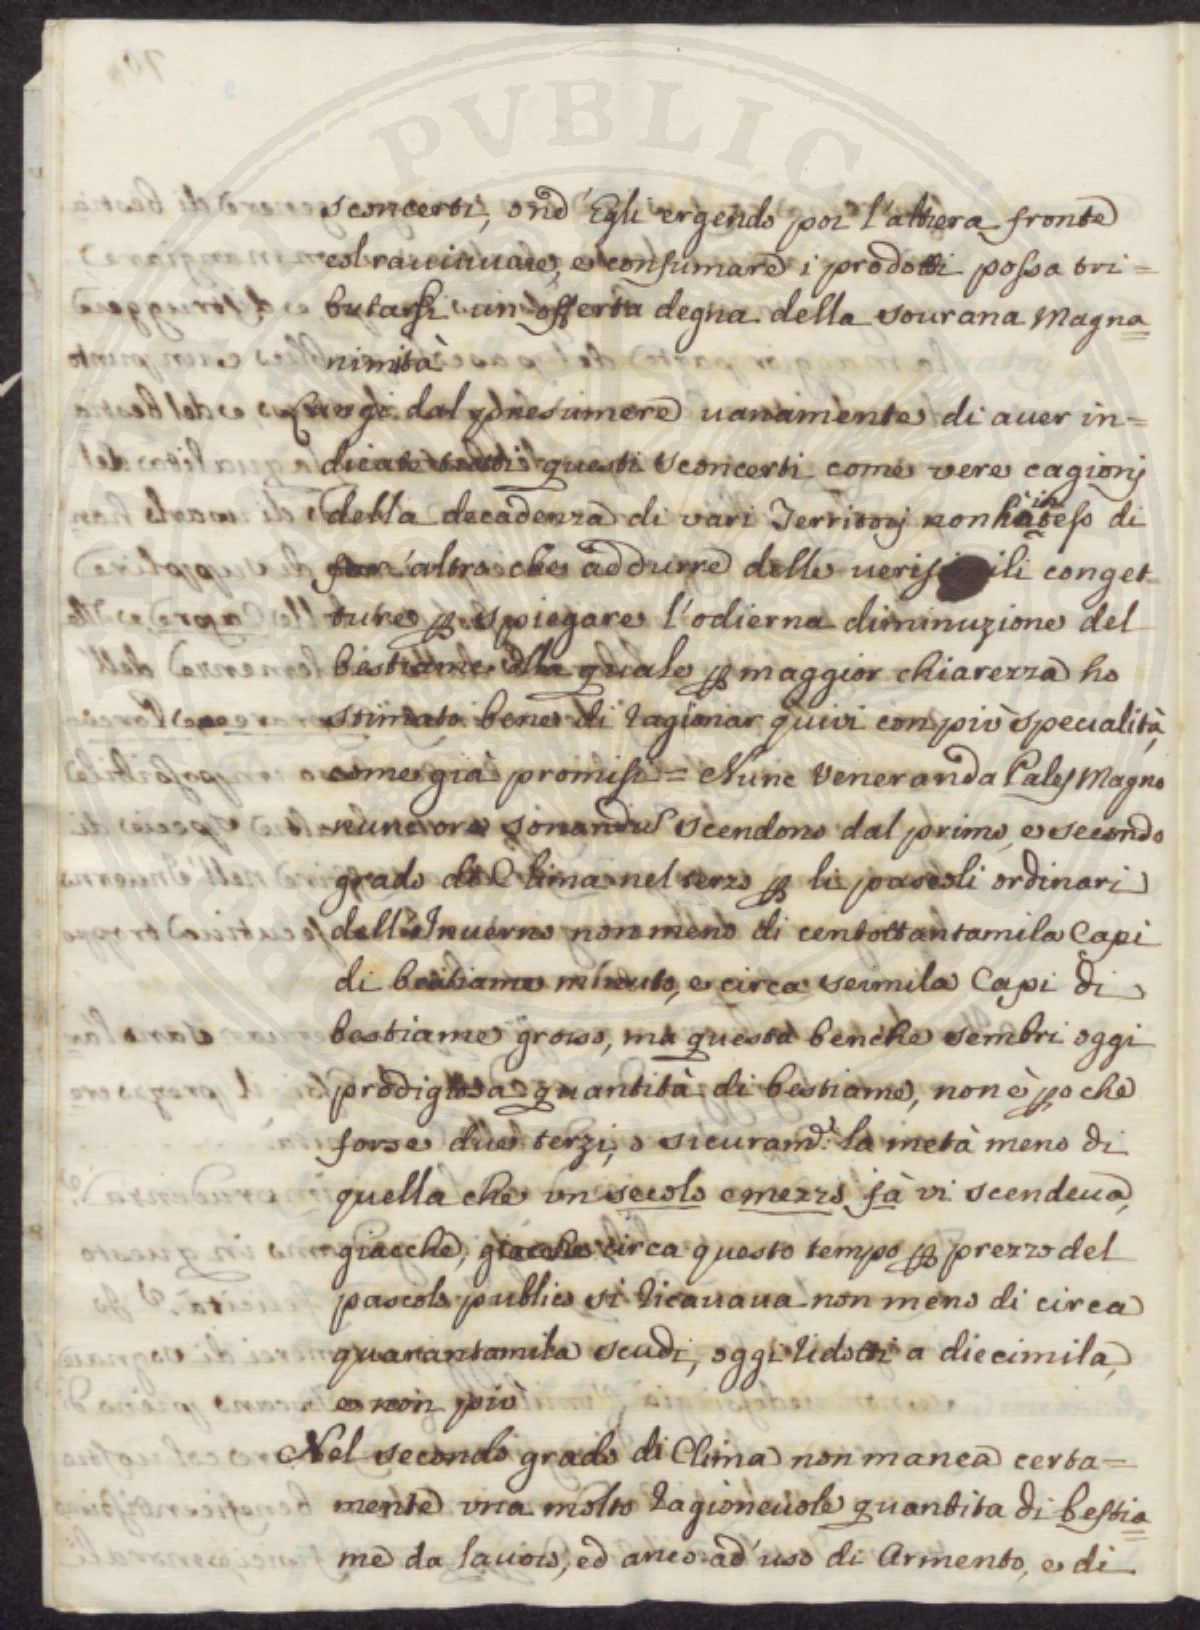 sconcerti, onde Egli ergendo poi l'altiera fronte
col ravvivare, e consumare i prodotti possa tri=
butarsi un'offerta degna della sourana Magna
nimità
Lungi dal presumere uanamente di auer in=
dicate tutti questi sconcerti come vere cagionj
della decadenza di vari Territorj non hà inteso di
far altro che addurre delle ueris ili conget
ture p spiegare l'odierna diminuzione del
bestiame della quale p maggior chiarezza ho
stimato bene di ragionar quivi con più specialità,
come già promisi = Nunc Veneranda Pales Magno
nunc ore sonandus scendono dal primo, e secondo
grado di Clima nel terzo p li pascoli ordinari
dell'Inuerno non meno di centottantamila Capi
di bestiame minuto, e circa seimila Capi di
bestiame grosso, ma questa benche sembri oggi
prodigiosa quantità di bestiame, non è po che
forse due terzi, o sicuramte la metà meno di
quella che un secolo e mezzo fà vi scendeua,
giacche, circa questo tempo p prezzo del
pascolo publico si ricauaua non meno di circa
quarantamila scudi, oggi ridotti a diecimila,
e non più
Nel secondo grado di Clima non manca certa=
mente una molto ragioneuole quantita di bestia
me da lauoro, ed anco ad uso di Armento, e di